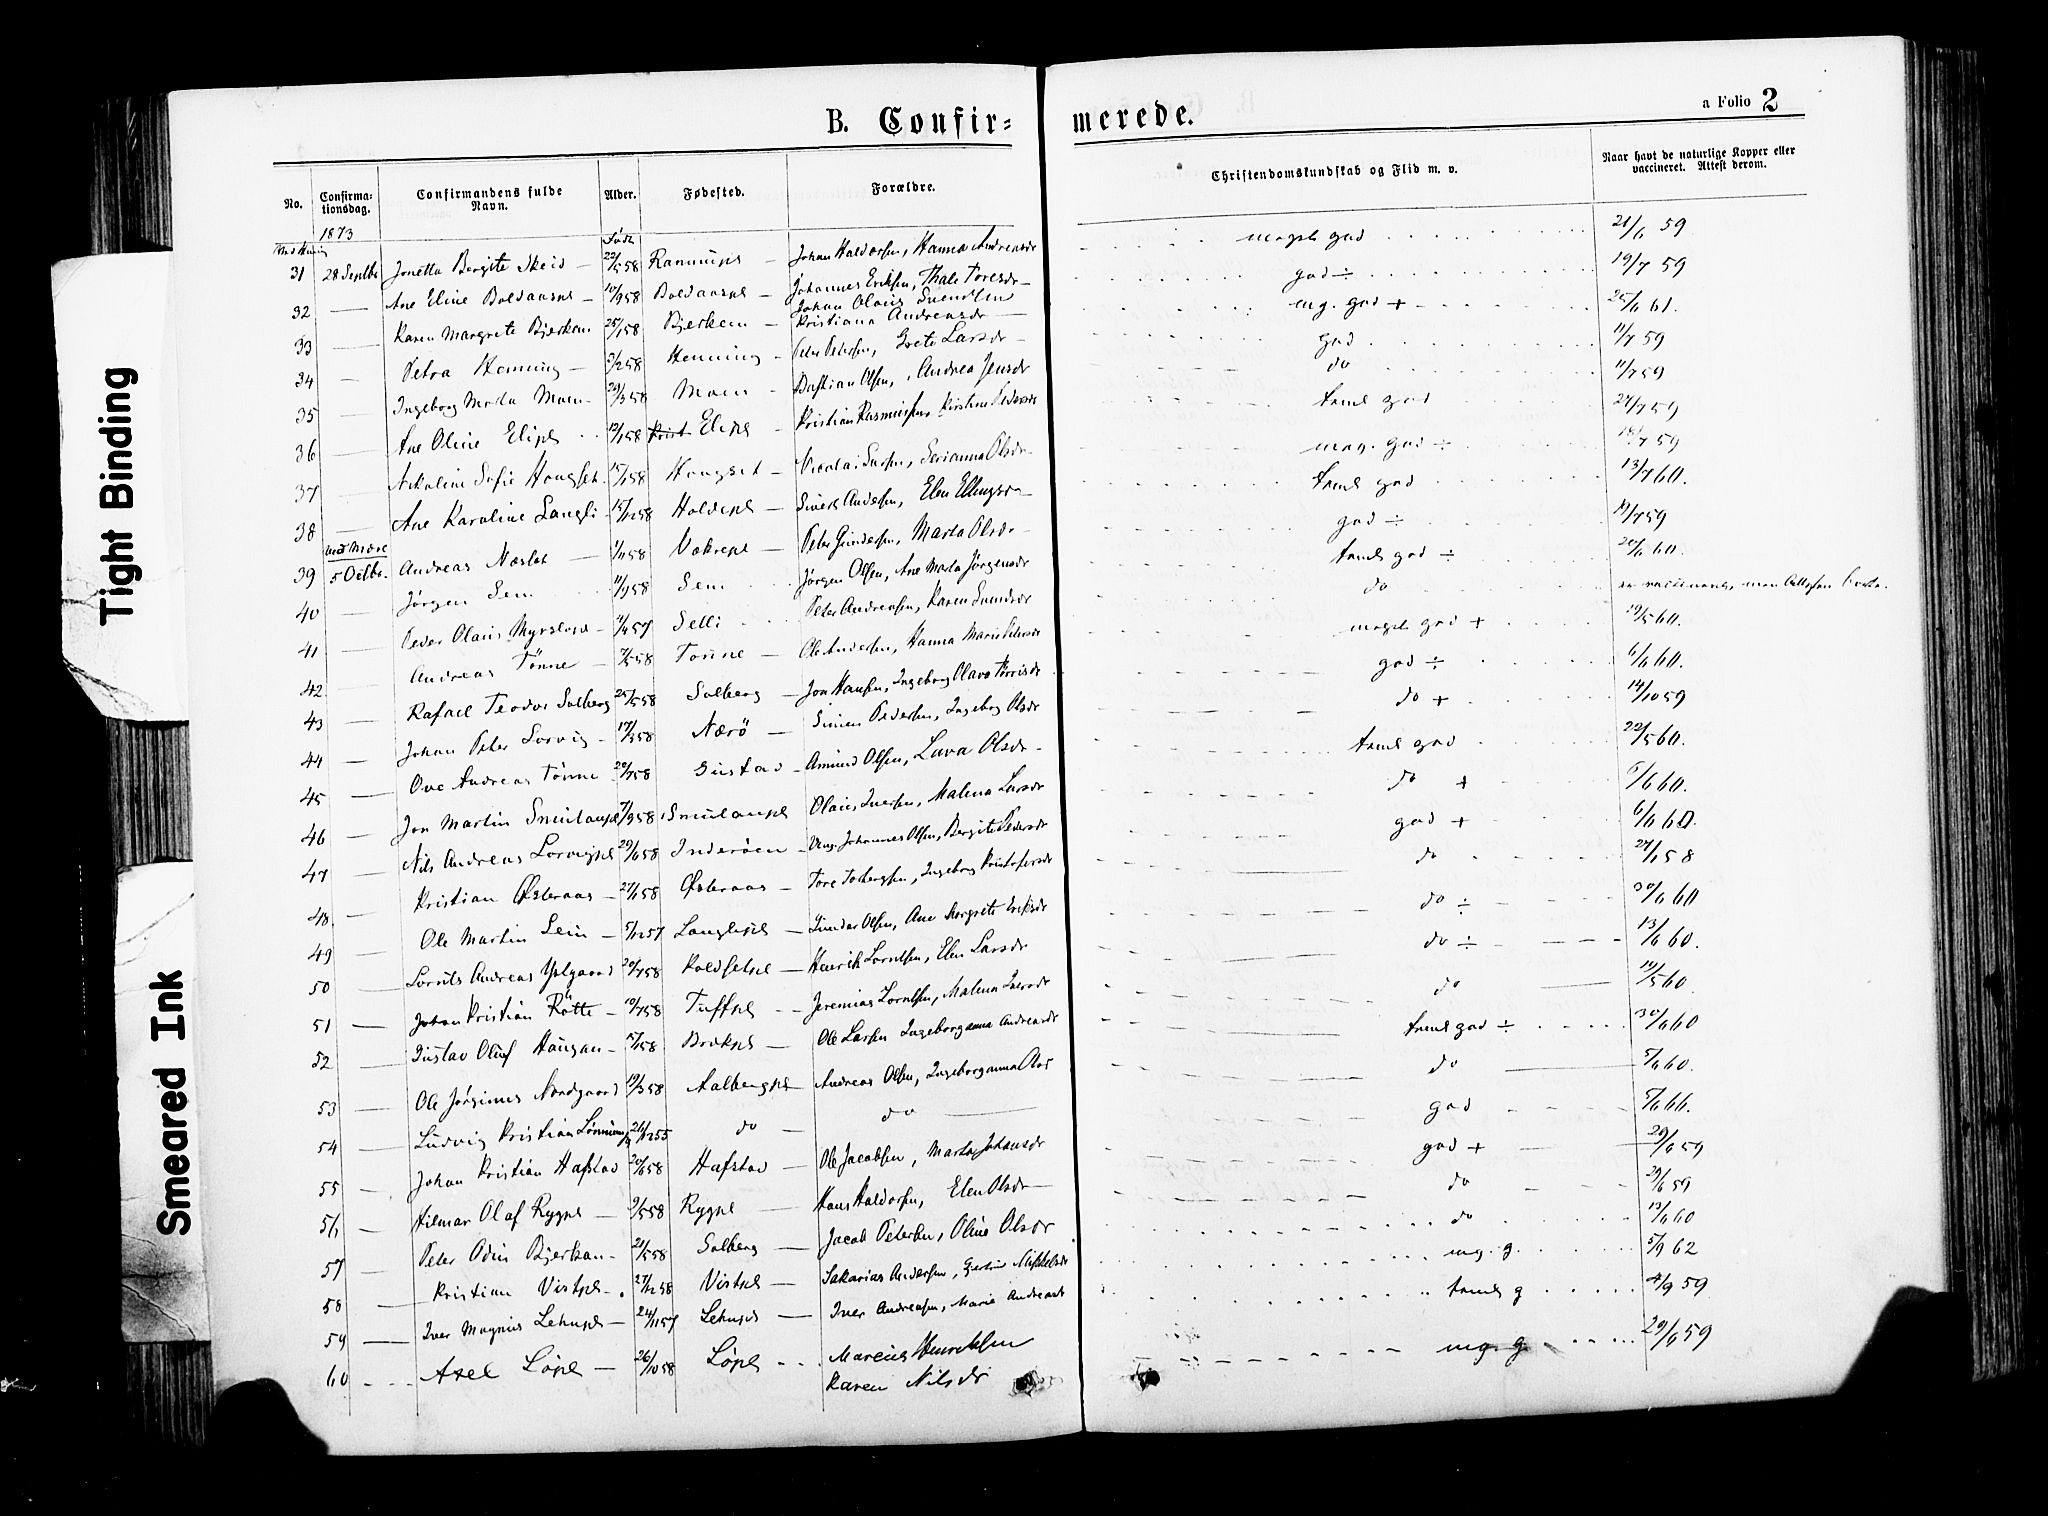 Tight Binding
Smeared Ink
B. Confir=
merede.
a Folio 2
No.
Confirma=
tionsdag.
Confirmandens fulde
Navn.
Alder.
Fødested.
Forældre.
Christendomskundskab og Flid m. v.
Naar havt de naturlige Kopper eller
vaccineret. Attest derom.
1873
Født
31 28 Septbr Jonetta Bergite Skeid 22/5 58 Johan Haldorsen, Hanna Andreasdr meget god 21/6 59
32 Ane Eline 10/9 58 Johannes Eriksen, Thale Toresdr god ÷ 19/7 59
Johan Olaus Svendsen
33 Karen Margrete Bjerkem 25/1 58 Bjerkem Kristiana Andreasdr mg. god + 25/6 61.
34 Petra Henning 3/2 58 Henning Peter Petersen, Grete Larsdr god 11/7 59
35 Ingeborg Marta Moen 29/3 58 Moen Bastian Olsen, Andrea Jensdr do 11/7 59
36 Ane Oline 12/1 58 Kristian Rasmussen, Kirstine Pedersdr temel god 27/7 59
37 Nikoline Sofie Haugset 15/1 58 Haugset Nicolai, Serianna Olsdr mag. god ÷ 18/7 59
38 Ane Karoline Langli 15/12 58 Sivert Andersen, Elen Ellingsdr temel god 13/7 60.
ved Mære
39 5 Octbr. Andreas 1/11 58 Peter Gundersen, Marta Olsdr god ÷ 19/7 59
40 Jørgen Sem 11/9 58 Sem Jørgen Olsen, Ane Marta Jørgensdr temel god ÷ 20/6 60.
41 Peder Olaus 57 Selli Peter Andreasen, Karen Svendsdr do er vaccineret, men Attesten borte.
42 Andreas Tønne 7/5 58 Tønne Ole Andersen, Hanna Marie Petersdr meget god + 19/5 60.
43 Rafael Teodor Solberg 25/5 58 Solberg Jon Hansen, Ingeborg Olava god ÷ 6/6 60.
44 Johan Peter Lorvig 17/3 58 Nærö Simen Pedersen, Ingebog Olsdr do + 14/10 59
45 Ove Andreas Tönne 20/7 58 Gustad Amund Olsen, Lava Olsdr temel god 22/5 60.
46 Jon Martin 7/9 58 Olaus Iversen, Malena Larsdr do + 6/6 60.
47 Nils Andreas 29/6 58 Inderöen Johannes Olsen, Bergite Pedersdr god + 6/6 60.
48. Kristian Østeraas 27/1 58 Østeraas Tore Torbergsen, Ingeborg Kristofersdr do 27/1 58
49 Ole Martin Sem 5/12 57 Gunder Olsen, Ane Margrete Eriksdr do ÷ 30/6 60
50 Lornts Andreas 20/7 58 Henrik Lorntsen, Elen Larsdr do ÷ 13/6 60.
51 Johan Kristian Rötte 10/7 58 Jeremias Lorntsen, Malena Iversdr do 19/5 60
52 Gustav Oluf Haugan 15/1 58 Ole Larsen Ingeborganna Andreasdr temel god ÷ 30/6 60
53 Ole Jörginus Nordgaard 19/3 58 Andreas Olsen, Ingeborganna Olsdr do 5/6 60.
54 Ludvig Kristian 26/12 55 do do god 5/6 66.
55 Johan Kristian Hafstad 20/6 58 Hafstad Ole Jacobsen, Marta Johansdr god + 29/6 59
56 Hilmar Olaf 9/5 58 Hans Haldorsen, Elen Olsdr do 29/6 59
57 Peter Odin Bjerkan 21/5 58 Solberg Jacob Petersen, Oline Olsdr do 13/6 60
58 Kristian 27/12 58 Sakarias Andersen, Mikkelsdr mg. g. 5/9 62
59 Iver Magnus 24/11 57 Iver Andreasen, Maria Andreasdr temel g 4/9 59
60 Axel 26/10 58 Marcus Henriksen mg. g. 29/6 59
Karen Nilsdr